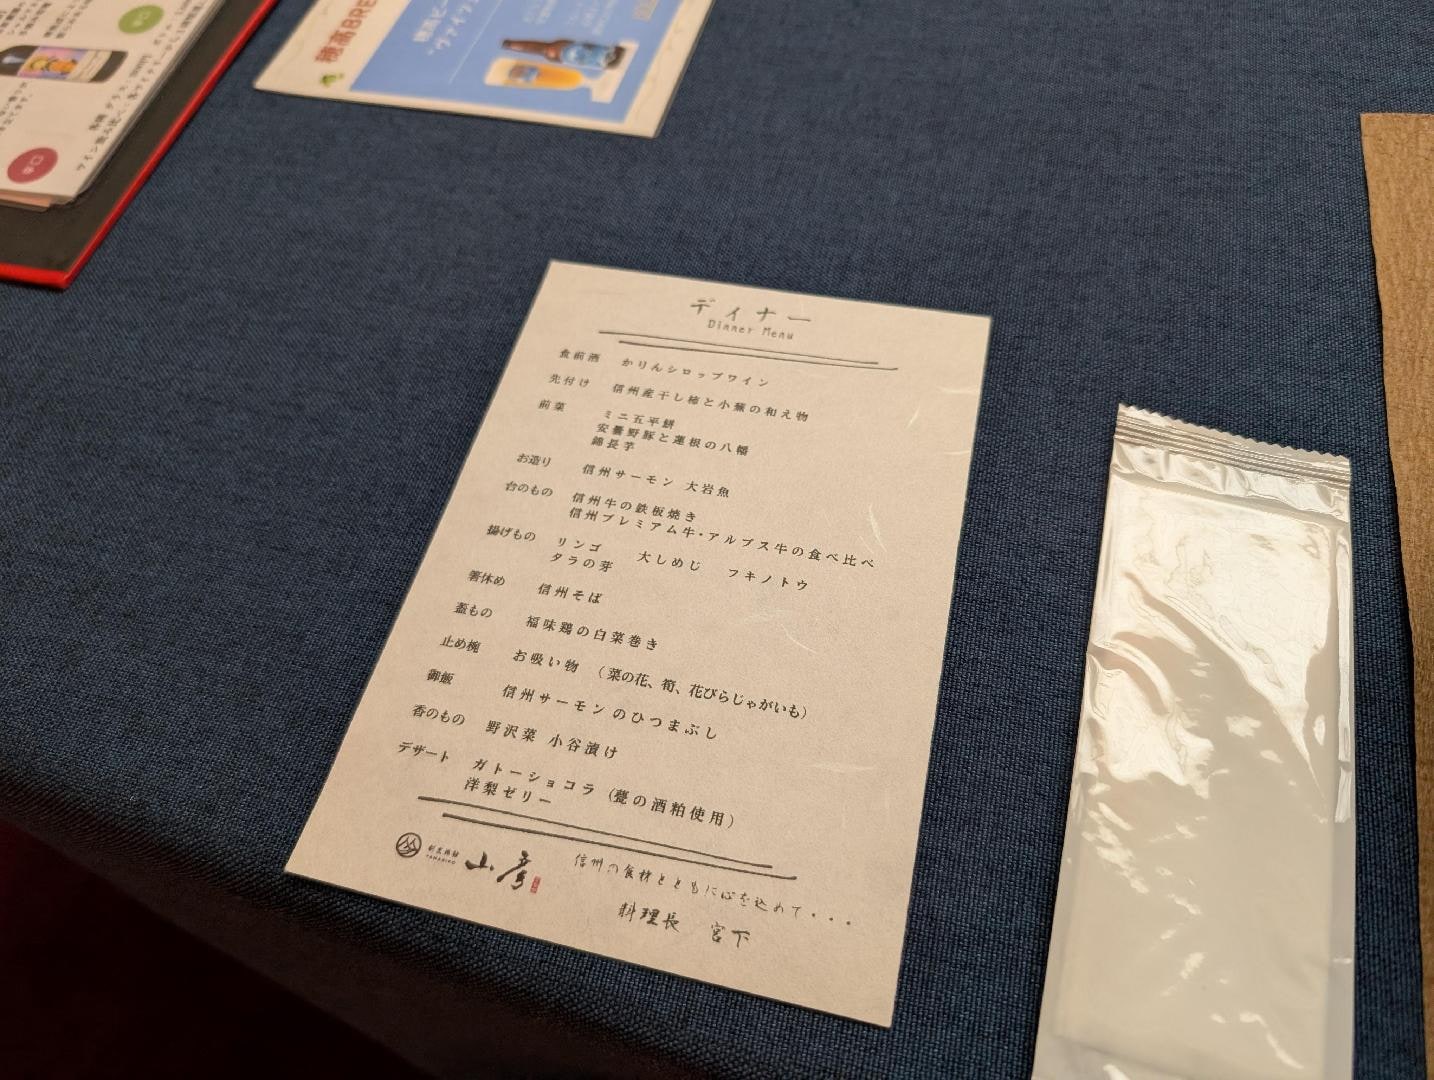 ディナー
Dinner Menu
食前酒 かりんシロップワイン
先付け 信州産干し柿と小蕪の和え物
前菜 ミニ五平餅
安曇野豚と蓮根の八幡
錦長芋
お造り 信州サーモン 大岩魚
台のもの 信州牛の鉄板焼き
信州プレミアム牛・アルプス牛の食べ比べ
揚げもの リンゴ 大しめじ フキノトウ
タラの芽
箸休め 信州そば
蓋もの 福味鶏の白菜巻き
止め椀 お吸い物 (菜の花、筍、花びらじゃがいも)
御飯 信州サーモンのひつまぶし
香のもの 野沢菜 小谷漬け
デザート ガトーショコラ (甕の酒粕使用)
洋梨ゼリー
YAMABIKO
山彦
信州の食材とともに心を込めて・・・
料理長 宮下
穂高BRE
辛口